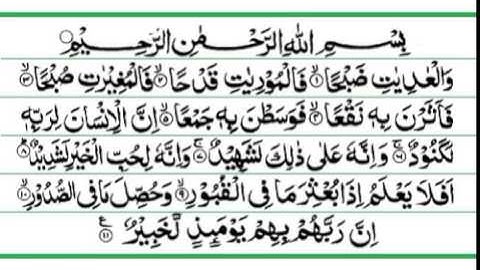 بِسْمِ اللهِ الرَّحْمٰنِ الرَّحِيْمِ
وَالْعٰدِيٰتِ ضَبْحًا ۙ﴿۱﴾ فَالْمُوْرِيٰتِ قَدْحًا ۙ﴿۲﴾ فَالْمُغِيْرٰتِ صُبْحًا ۙ﴿۳﴾
فَاَثَرْنَ بِهٖ نَقْعًا ۙ﴿۴﴾ فَوَسَطْنَ بِهٖ جَمْعًا ۙ﴿۵﴾ اِنَّ الْاِنْسَانَ لِرَبِّهٖ
لَكَنُوْدٌ ۚ﴿۶﴾ وَاِنَّهٗ عَلٰى ذٰلِكَ لَشَهِيْدٌ ۚ﴿۷﴾ وَاِنَّهٗ لِحُبِّ الْخَيْرِ لَشَدِيْدٌ ؕ﴿۸﴾
اَفَلَا يَعْلَمُ اِذَا بُعْثِرَ مَا فِى الْقُبُوْرِ ۙ﴿۹﴾ وَحُصِّلَ مَا فِى الصُّدُوْرِ ۙ﴿۱۰﴾
اِنَّ رَبَّهُمْ بِهِمْ يَوْمَىِٕذٍ لَّخَبِيْرٌ ﴿۱۱﴾